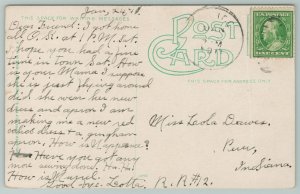 Jan. 24, 11.
THIS SPACE FOR WRITING MESSAGES
Dear Friend: I got home
all O.K. at 1 P.M. Sat.
I hope you had a fine
time in town Sat. How
is your Mama? I suppose
she is just flying around
did she over her new
dress and apron I am
making me a new red
calico dress + a gingham
apron. How is Mr
How have you got any
more sewing done. Ha. Ha.
How is Muriel.
Good bye. Lotta.
POST
CARD
THIS SPACE FOR ADDRESS ONLY
U.S. POSTAGE
ONE CENT
JAN
Miss Leola Dawes,
Peru,
Indiana.
R.R.#2.